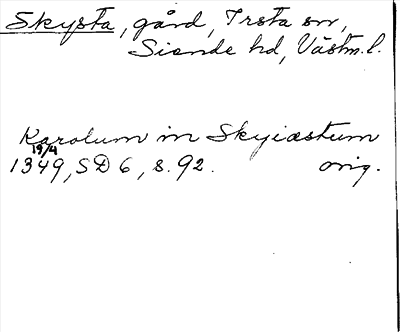 Skysta, gård, Irsta sn,
Siende hd, Västm. l.
Karolum in Skyiæstum
19/4
1349, SD 6, s. 92. orig.